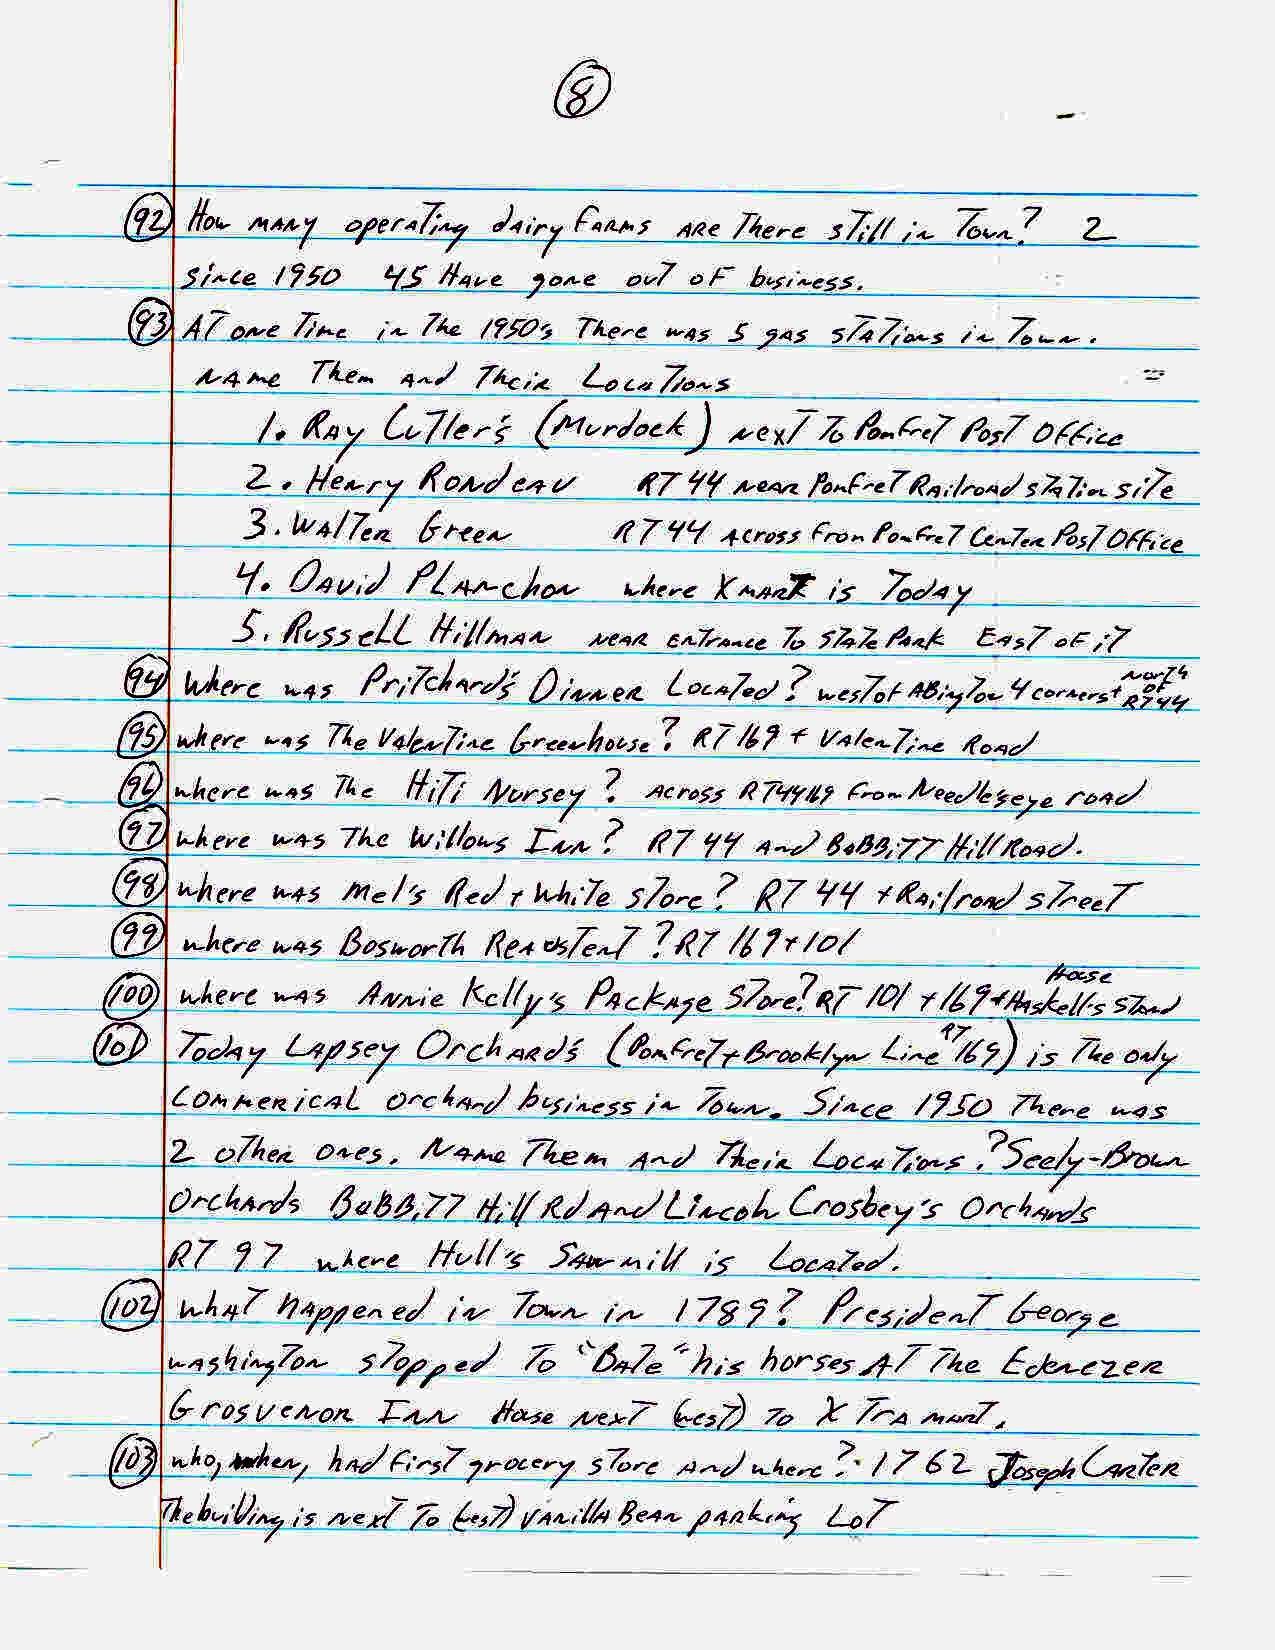 8
92 How many operating dairy farms are there still in Town? 2
since 1950 45 Have gone out of business.
93 At one Time in The 1950's There was 5 gas stations in Town.
Name Them and Their Locations
1. Ray Cutler's (Murdock) next To Pomfret Post Office
2. Henry Rondeau RT 44 near Pomfret Railroad station site
3. Walter Green RT 44 across from Pomfret Center Post Office
4. David Planchon where Xmart is Today
5. Russell Hillman near entrance to state Park East of it
94 Where was Pritchard's Dinner Located? west of Abington 4 corners + north of RT 44
95 where was The Valentine Greenhouse? RT 169 + Valentine Road
96 where was The Hiti Nursey? across RT 44169 from Needle'seye road
97 where was The Willows Inn? RT 44 and Babbitt Hill Road.
98 where was Mel's Red + White store? RT 44 + Railroad street
99 where was Bosworth ? RT 169 + 101
100 where was Annie Kelly's Package Store? RT 101 + 169 + Haskell's House stand
101 Today Lapsey Orchard's (Pomfret + Brooklyn Line RT 169) is The only
commerical orchard business in Town. Since 1950 There was
2 other ones. Name Them and Their Locations.? Seely-Brown
Orchards Babbitt Hill Rd and Lincoln Crosbey's Orchards
RT 97 where Hull's Sawmill is Located.
102 what happened in Town in 1789? President George
washington stopped To "Bate" his horses at The Ebenezer
Grosvenor Inn House next (west) to X Tra mart.
103 who, when, had first grocery store and where? 1762 Joseph Carter
The building is next To (west) Vanilla Bean parking Lot